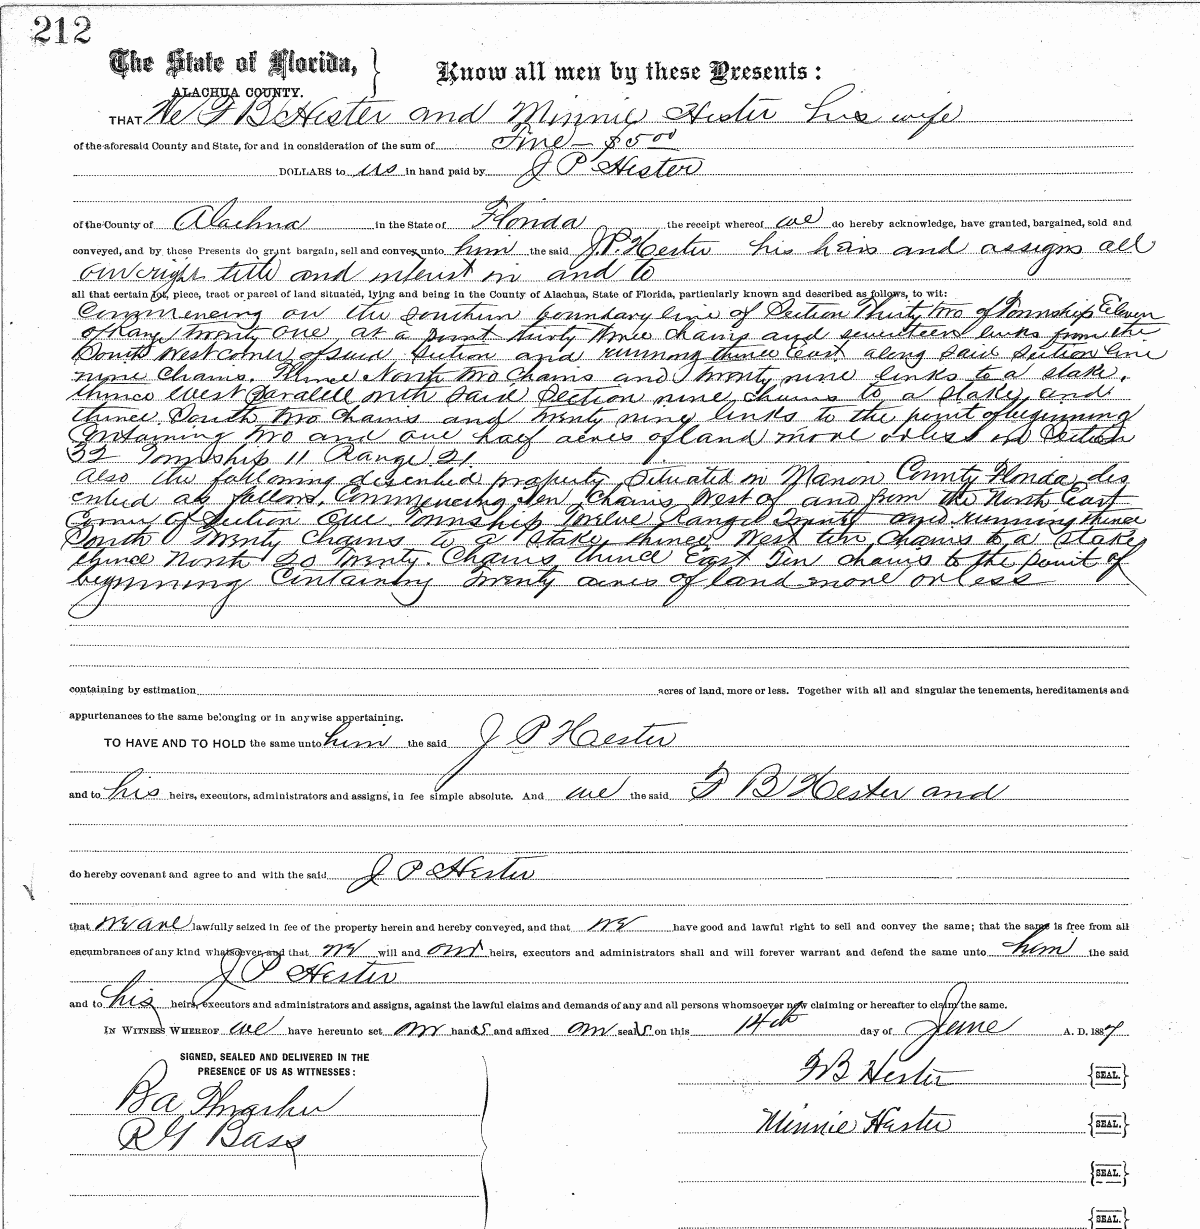 212
The State of Florida, }
ALACHUA COUNTY.
Know all men by these Presents:
THAT We F B Hester and Minnie Hester his wife
of the aforesaid County and State, for and in consideration of the sum of Five — $5 00
DOLLARS to us in hand paid by J P Hester
of the County of Alachua in the State of Florida the receipt whereof we do hereby acknowledge, have granted, bargained, sold and
conveyed, and by these Presents do grant bargain, sell and convey unto him the said J.P. Hester his heirs and assigns all
our right title and interest in and to
all that certain lot, piece, tract or parcel of land situated, lying and being in the County of Alachua, State of Florida, particularly known and described as follows, to wit:
Commencing on the southern boundary line of Section Thirty two of Township Eleven
of Range twenty one at a point thirty three chains and seventeen links from the
South West corner of said Section and running thence East along said Section line
nine Chains. Thence North two Chains and twenty nine links to a stake.
thence West Paralell with said Section nine chains to a stake and
thence South two Chains and twenty nine links to the point of beginning
Containing two and one half acres of land more or less in Section
32 Township 11 Range 21
Also the following described property situated in Marion County Florida des
cribed as follows. Commencing ten Chains West of and from the North East
Corner of Section One Township Twelve Range Twenty and running thence
South Twenty Chains to a Stake thence West ten Chains to a Stake
thence North 20 Twenty Chains thence East Ten chains to the point of
beginning Containing Twenty acres of land more or less
containing by estimation acres of land, more or less. Together with all and singular the tenements, hereditaments and
appurtenances to the same belonging or in anywise appertaining.
TO HAVE AND TO HOLD the same unto him the said J P Hester
and to his heirs, executors, administrators and assigns, in fee simple absolute. And we the said F B Hester and
do hereby covenant and agree to and with the said J P Hester
that we are lawfully seized in fee of the property herein and hereby conveyed, and that we have good and lawful right to sell and convey the same; that the same is free from all
encumbrances of any kind whatsoever, and that we will and our heirs, executors and administrators shall and will forever warrant and defend the same unto him the said
J P Hester
and to his heirs, executors and administrators and assigns, against the lawful claims and demands of any and all persons whomsoever now claiming or hereafter to claim the same.
IN WITNESS WHEREOF we have hereunto set our hands and affixed our seals on this 14th day of June A. D. 1887
SIGNED, SEALED AND DELIVERED IN THE
PRESENCE OF US AS WITNESSES:
F B Hester {SEAL.}
B a Thrasher
Minnie Hester {SEAL.}
R G Bass
{SEAL.}
{SEAL.}